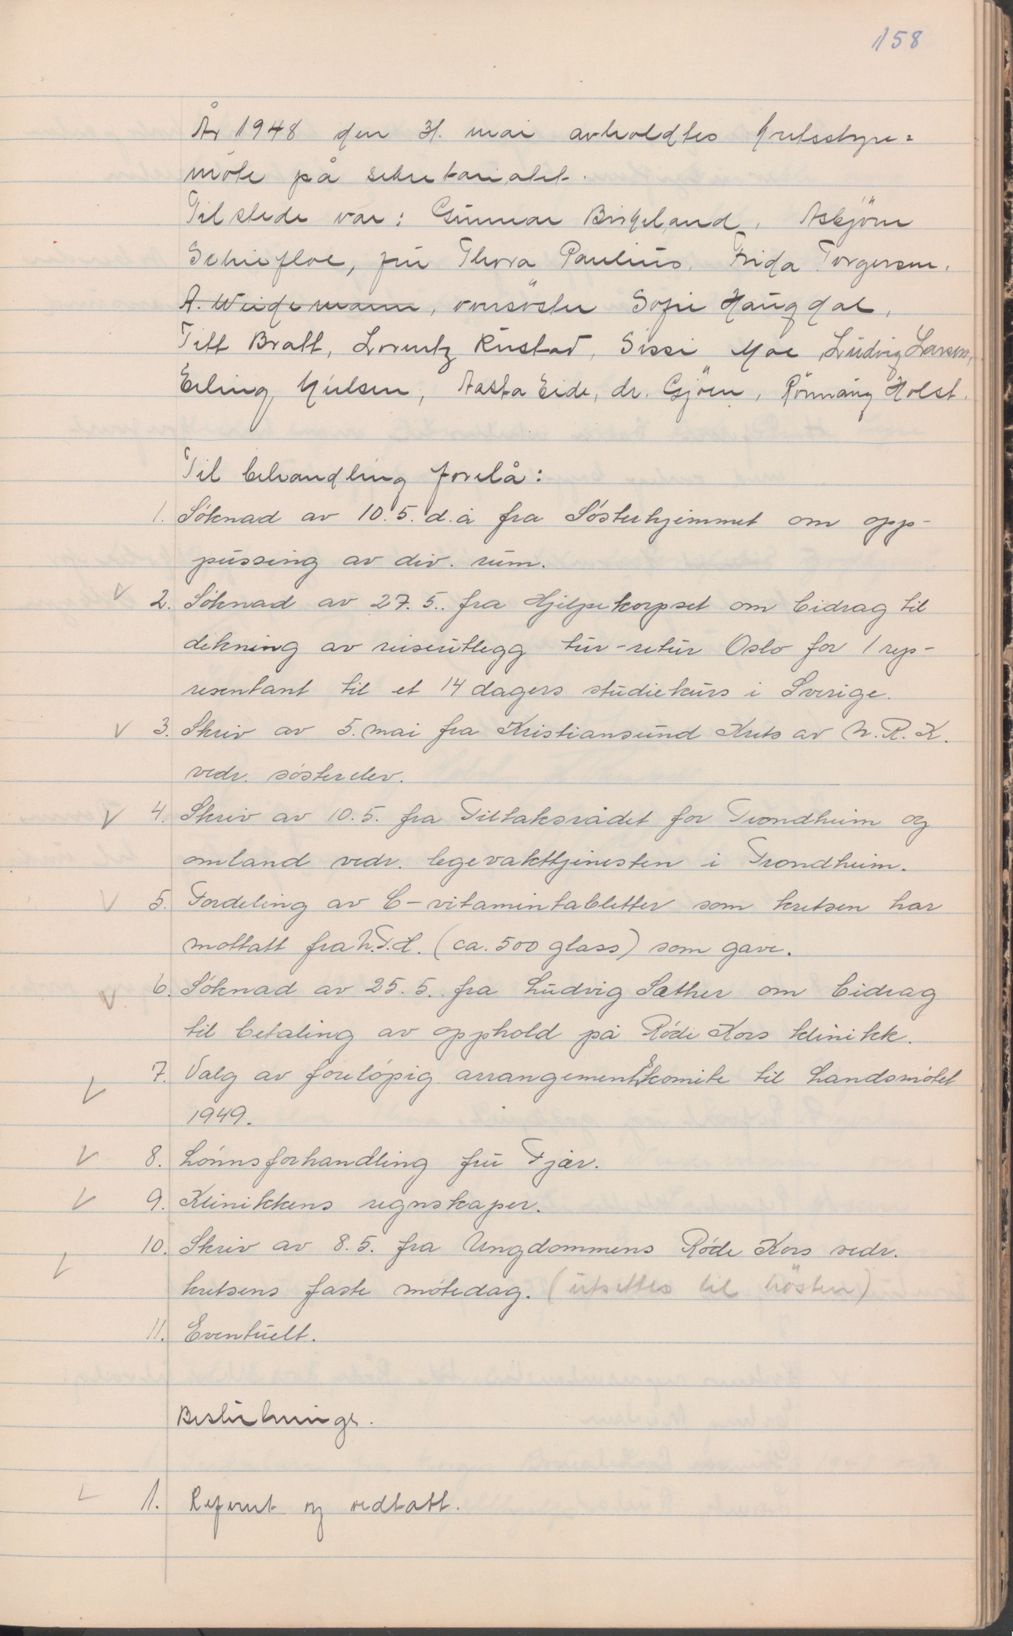 158
År 1948 den 31. mai avholdtes kretsstyre=
möte på sekretariatet.
Tilstede var: Gunnar Birkeland, Asbjörn
Schiefloe, fru Thora Paulius, Frida Torgersen,
A. Weidemann, oversöster Sofie Haugdal,
Titt Bratt, Lorentz Rustad, Sissi Moe, Ludvig Larssen,
Erling Nielsen, Aasta Eide, dr. Gjöen, Rönnaug Holst.
Til behandling forelå:
1. Söknad av 10.5. d.å fra Sösterhjemmet om opp-
pussing av div. rum.
2. Söknad av 27.5. fra Hjelpekorpset om bidrag til
dekning av reiseutlegg tur-retur Oslo for 1 rep-
resentant til et 14 dagers studiekurs i Sverige.
3. Skriv av 5. mai fra Kristiansund Krets av N.R.K.
vedr. sösterelev.
4. Skriv av 10.5. fra Tiltaksrådet for Trondheim og
omland vedr. legevakttjenesten i Trondheim.
5. Fordeling av C-vitamintabletter som kretsen har
mottatt fra (ca. 500 glass) som gave.
6. Söknad av 25.5. fra Ludvig Sæther om bidrag
til betaling av opphold på Röde Kors klinikk.
7. Valg av forelöpig arrangementskomite til Landsmötet
1949.
8. Lönnsforhandling fru Fjær.
9. Klinikkens regnskaper.
10. Skriv av 8.5. fra Ungdommens Röde Kors vedr.
kretsens faste mötedag. (utsettes til hösten)
11. Eventuelt.
Beslutninger.
1. Referert og vedtatt.